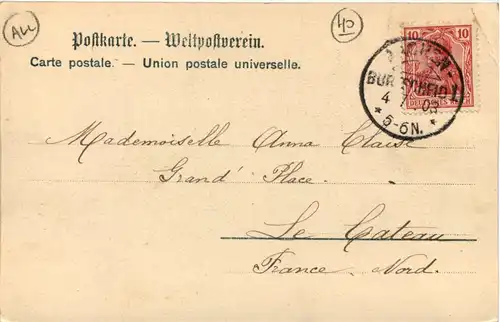 ALL
40
10 10
Postkarte. — Weltpostverein.
Carte postale. — Union postale universelle.
AACHEN
BURTSCHEID 1
4 03
* 5-6N. *
Mademoiselle Anna Claise
Grand' Place.
Le Cateau
France. Nord.